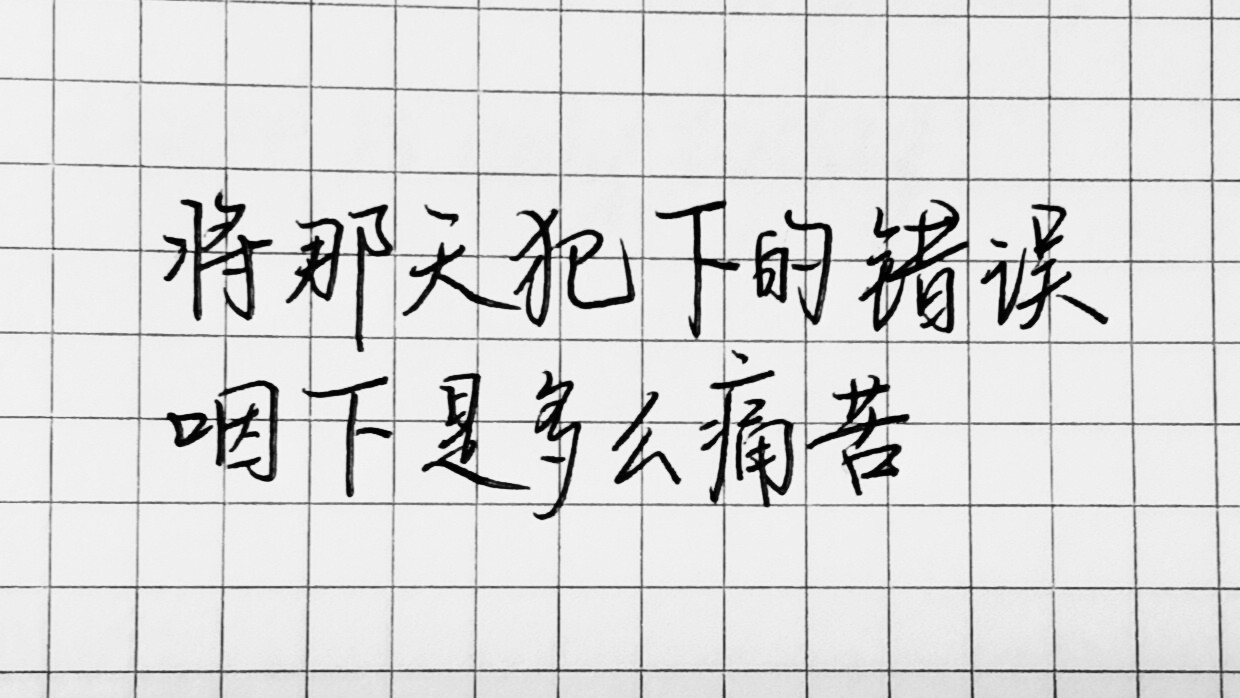 将那天犯下的错误
咽下是多么痛苦